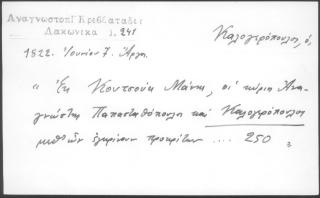 Ἀναγνωστοπ. Κρεββατάδες
Λακωνικὰ 1, 241
Καλογερόπουλος, ὁ,
1822. Ἰουνίου 7. Ἄργος.
« Ἐκ Κουτσούκ Μάνη, οἱ κύριοι Ἀνα-
γνώστης Παπασταθόπουλος καὶ Καλογερόπουλος
μεθ' ὧν ἐγκρίνουν προκρίτων .... 250 »